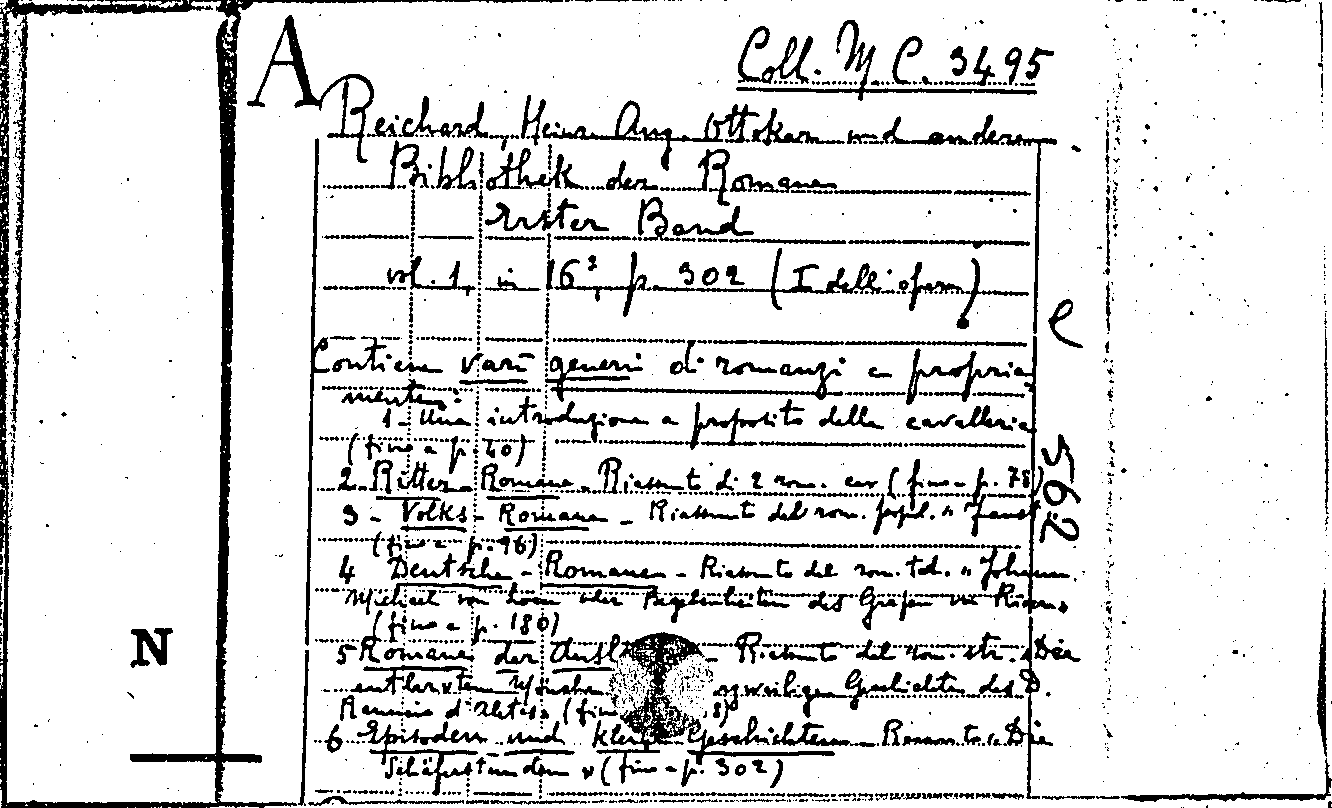 A
Coll. M. C. 3495
Reichard, Heinr. Aug. Ottokar und andere
Bibliothek der Romane
Erster Band
vol. 1, in 16°, p. 302 (I dell'opera)
Contiene varii generi di romanzi e propria
mente:
1. Una introduzione a proposito della cavalleria
(fino a p. 40)
2. Ritter-Romane - Riassunto di 2 rom. cav (fino a p. 78)
3 - Volks-Romane - Riassunto del rom. popol. "Faust
(fino a p. 96)
4 Deutsche-Romane - Riassunto del rom. ted. "Johann
Michael von oder Begebenheiten des Grafen von
(fino a p. 180)
5 Romane der Riassunto del rom. str. "Die
Geschichten des D.
(fino 8)
6 Episoden und kleine Geschichten - Riassunto "Die
(fino a p. 302)
e 562
N